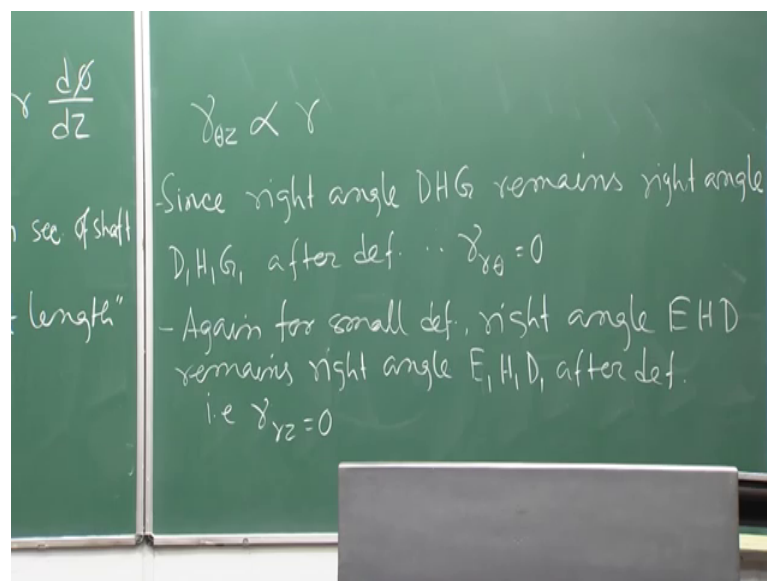 γ dφ/dz
n sec. of shaft
length"
γ_θz ∝ r
- Since right angle DHG remains right angle
D₁H₁G₁ after def. ∴ γ_rθ = 0
- Again for small def., right angle EHD
remains right angle E₁H₁D₁ after def.
i.e γ_rz = 0